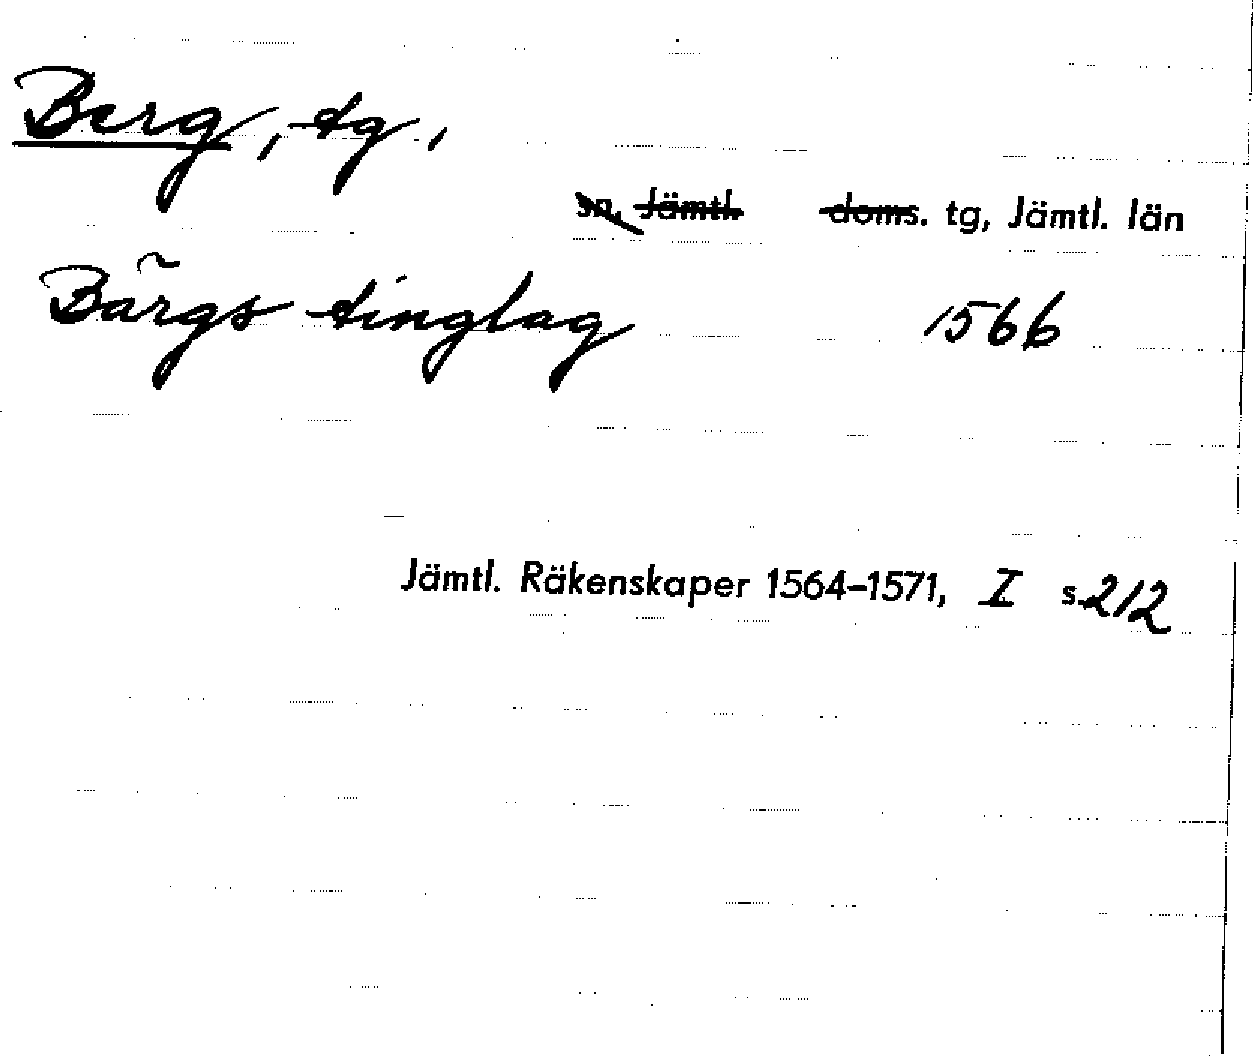 Berg, tg,
sn, Jämtl. doms. tg, Jämtl. län
Bärgs tinglag 1566
Jämtl. Räkenskaper 1564–1571, I s. 212